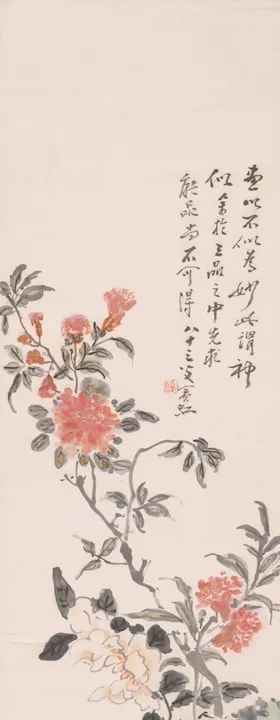 畫以不似為妙此謂神
似余於三品之中先求
能品尚不可得八十三叟賓虹